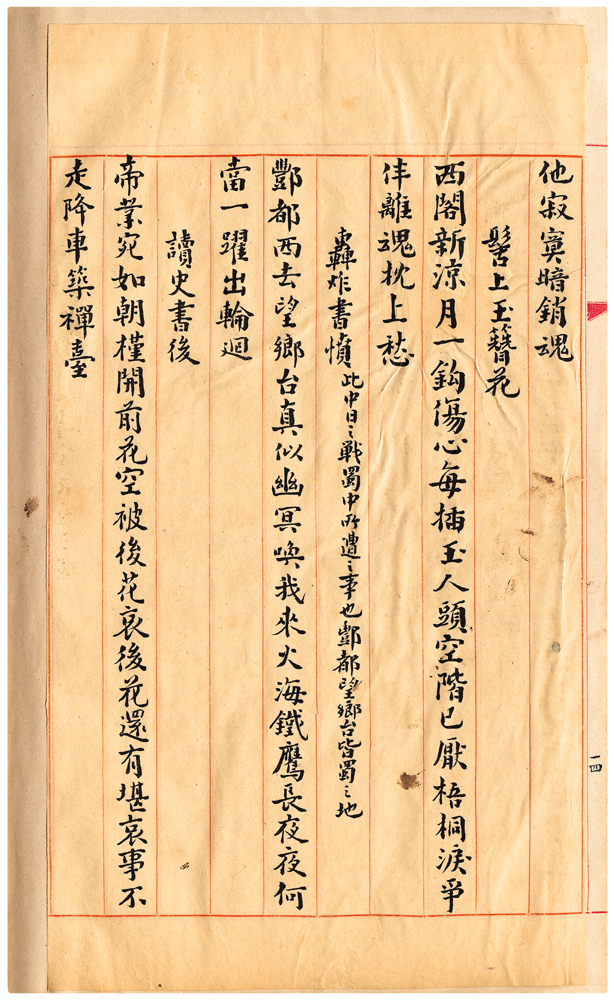 他寂寞暗銷魂
髻上玉簪花
西閣新涼月一鈎傷心每插玉人頭空階已厭梧桐淚爭
伴離魂枕上愁
轟炸書憤此中日之戰蜀中所遭之事也酆都望鄉台皆蜀之地
酆都西去望鄉台真似幽冥喚我來火海鐵鷹長夜夜何
當一躍出輪迴
讀史書後
帝業宛如朝槿開前花空被後花哀後花還有堪哀事不
走降車築禪臺
一四